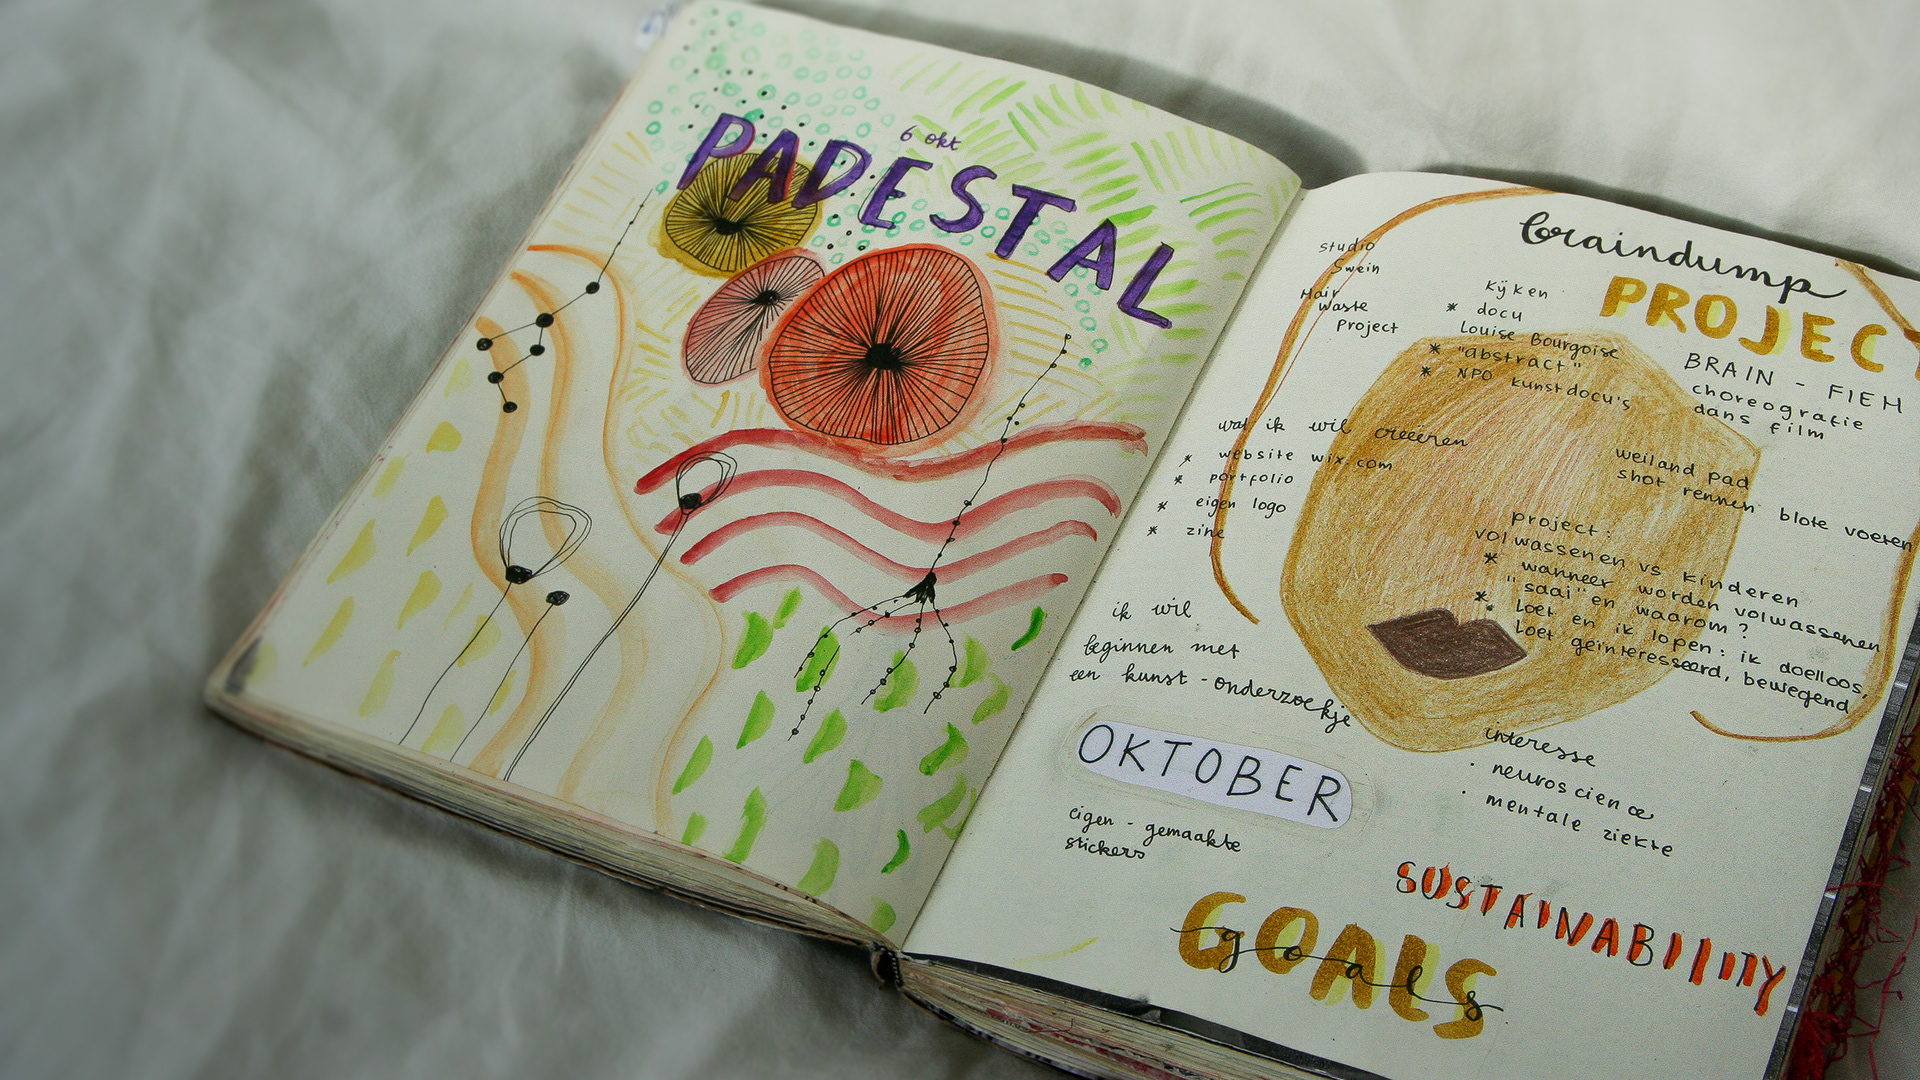 6 okt
PADESTAL
braindump
PROJECT
studio
Swein
Hair
waste
Project
kijken
* docu
Louise Bourgoise
* "abstract"
* NPO kunstdocu's
BRAIN - FIEH
choreografie
dans film
wat ik wil creëeren
* website wix.com
* portfolio
* eigen logo
* zine
weiland pad
shot rennen blote voeten
project:
volwassenen vs kinderen
* wanneer worden volwassenen
"saai" en waarom?
* Loet en ik lopen: ik doelloos,
Loet geïnteresseerd, bewegend
ik wil
beginnen met
een kunst-onderzoekje
OKTOBER
eigen-gemaakte
stickers
interesse
· neuroscience
· mentale ziekte
SUSTAINABIlITY
GOALS
goals